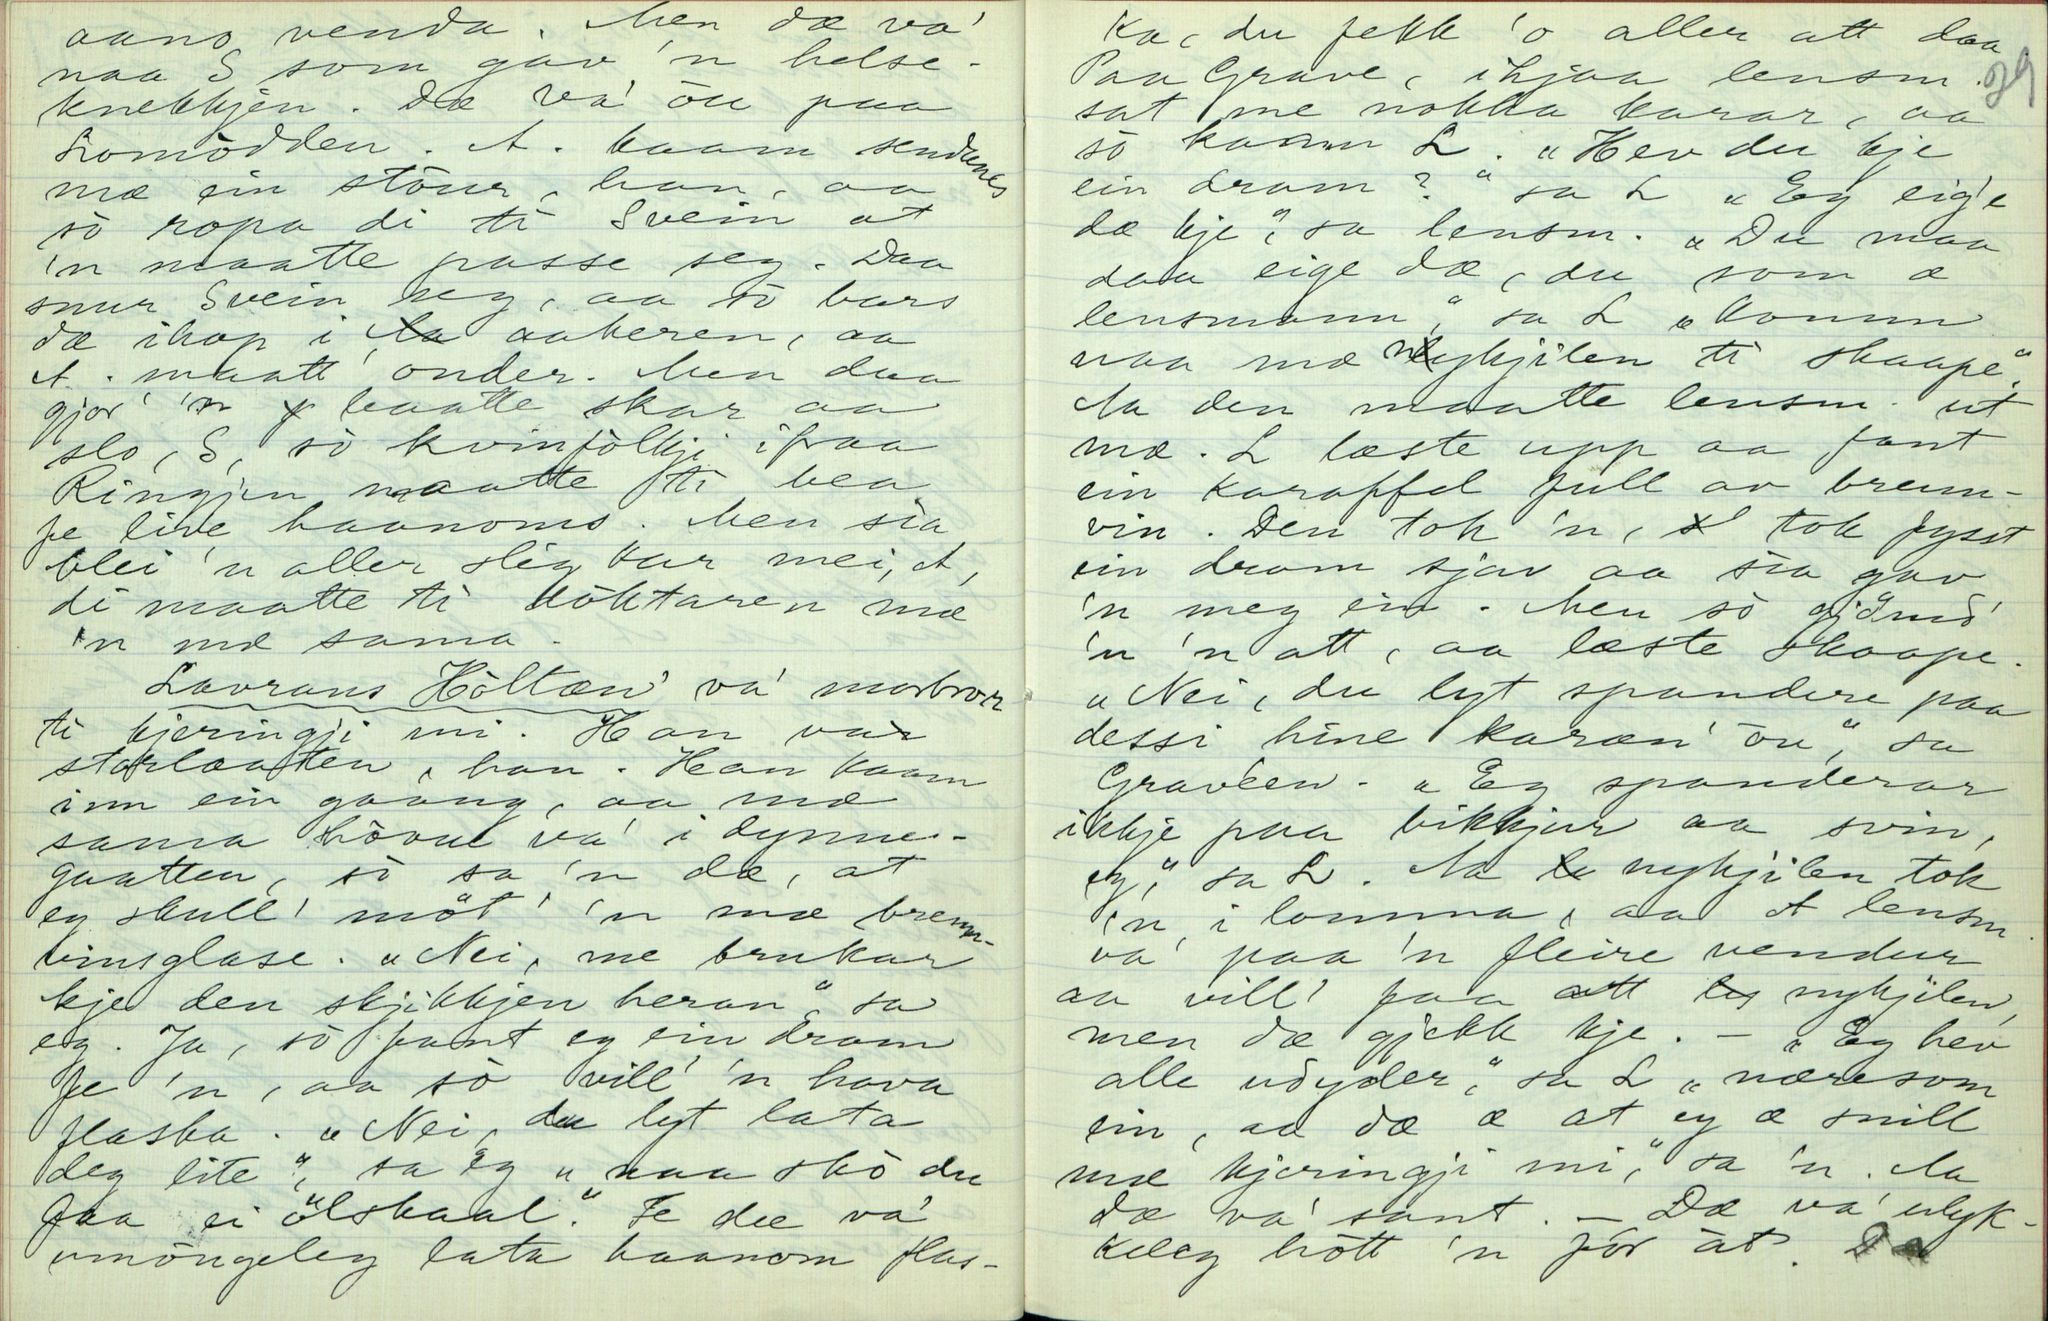 aano venda. Men dæ va'
naa S som gav 'n helse-
knekkjen. Dæ va' öu paa
Lromödden. A. kaam sendanes
mæ ein stöur, han, aa
so ropa di ti Svein at
'n maatte passe seg. Daa
snur Svein seg, aa so bars
dæ ihop i aakeren, aa
A. maatt' onder. Men daa
gjor' 'n baatte skar aa
slo, S, so kvinfolkji ifraa
Ringjen maatte ti bea
fe live haanoms. Men sia
blei 'n aller slig kar mei, A,
di maatte ti döktaren mæ
'n mæ sama.
Lavrans Höltæn' va' morbror
ti kjeringji mi. Han va
storlaaten, han. Han kaam
inn ein gaang, aa mæ
sama hovue va' i dynne-
gaatten, so sa 'n dæ, at
eg skull' möt' 'n mæ brenn-
vinsglase. "Nei, me brukar
kje den skjikkjen heran" sa
eg. Ja, so fant eg ein dram
fe 'n, aa so vill' 'n hava
flaska. "Nei, du lyt lata
deg lite", sa eg "naa sko du
faa ei ölskaal." Fe dæ va'
umöngeleg lata haanom flas-
ka, du fekk 'o aller att daa
29
Paa Grave, ihjaa lensm.
sat me nokka karar, aa
so kaam L. "Hev du kje
ein dram?" sa L "Eg eig'e
dæ kje", sa lensm. "Du maa
daa eige dæ, du som æ
lensmann," sa L "komm
naa mæ nykjilen ti skaape".
Aa den maatte lensm. ut
mæ. L læste upp aa fant
ein karaffel full av brenn-
vin. Den tok 'n, tok fysst
ein dram sjav aa sia gav
'n meg ein. Men so gjömd'
'n 'n att, aa læste skaape.
"Nei, du lyt spandere paa
dessi hine karæn' öu", sa
Graveen. "Eg spanderar
ikkje paa bikkjur aa svin,
eg," sa L. Aa nykjilen tok
'n i lomma, aa lensm.
va' paa 'n fleire vendur
aa vill' faa att nykjilen,
men dæ gjekk kje. – "Eg hev
alle udyder," sa L "næresom
ein, aa dæ æ at eg æ snill
mæ kjeringji mi," sa 'n. Aa
dæ va' sant. – Dæ va' ulyk-
keleg hött 'n for åt.